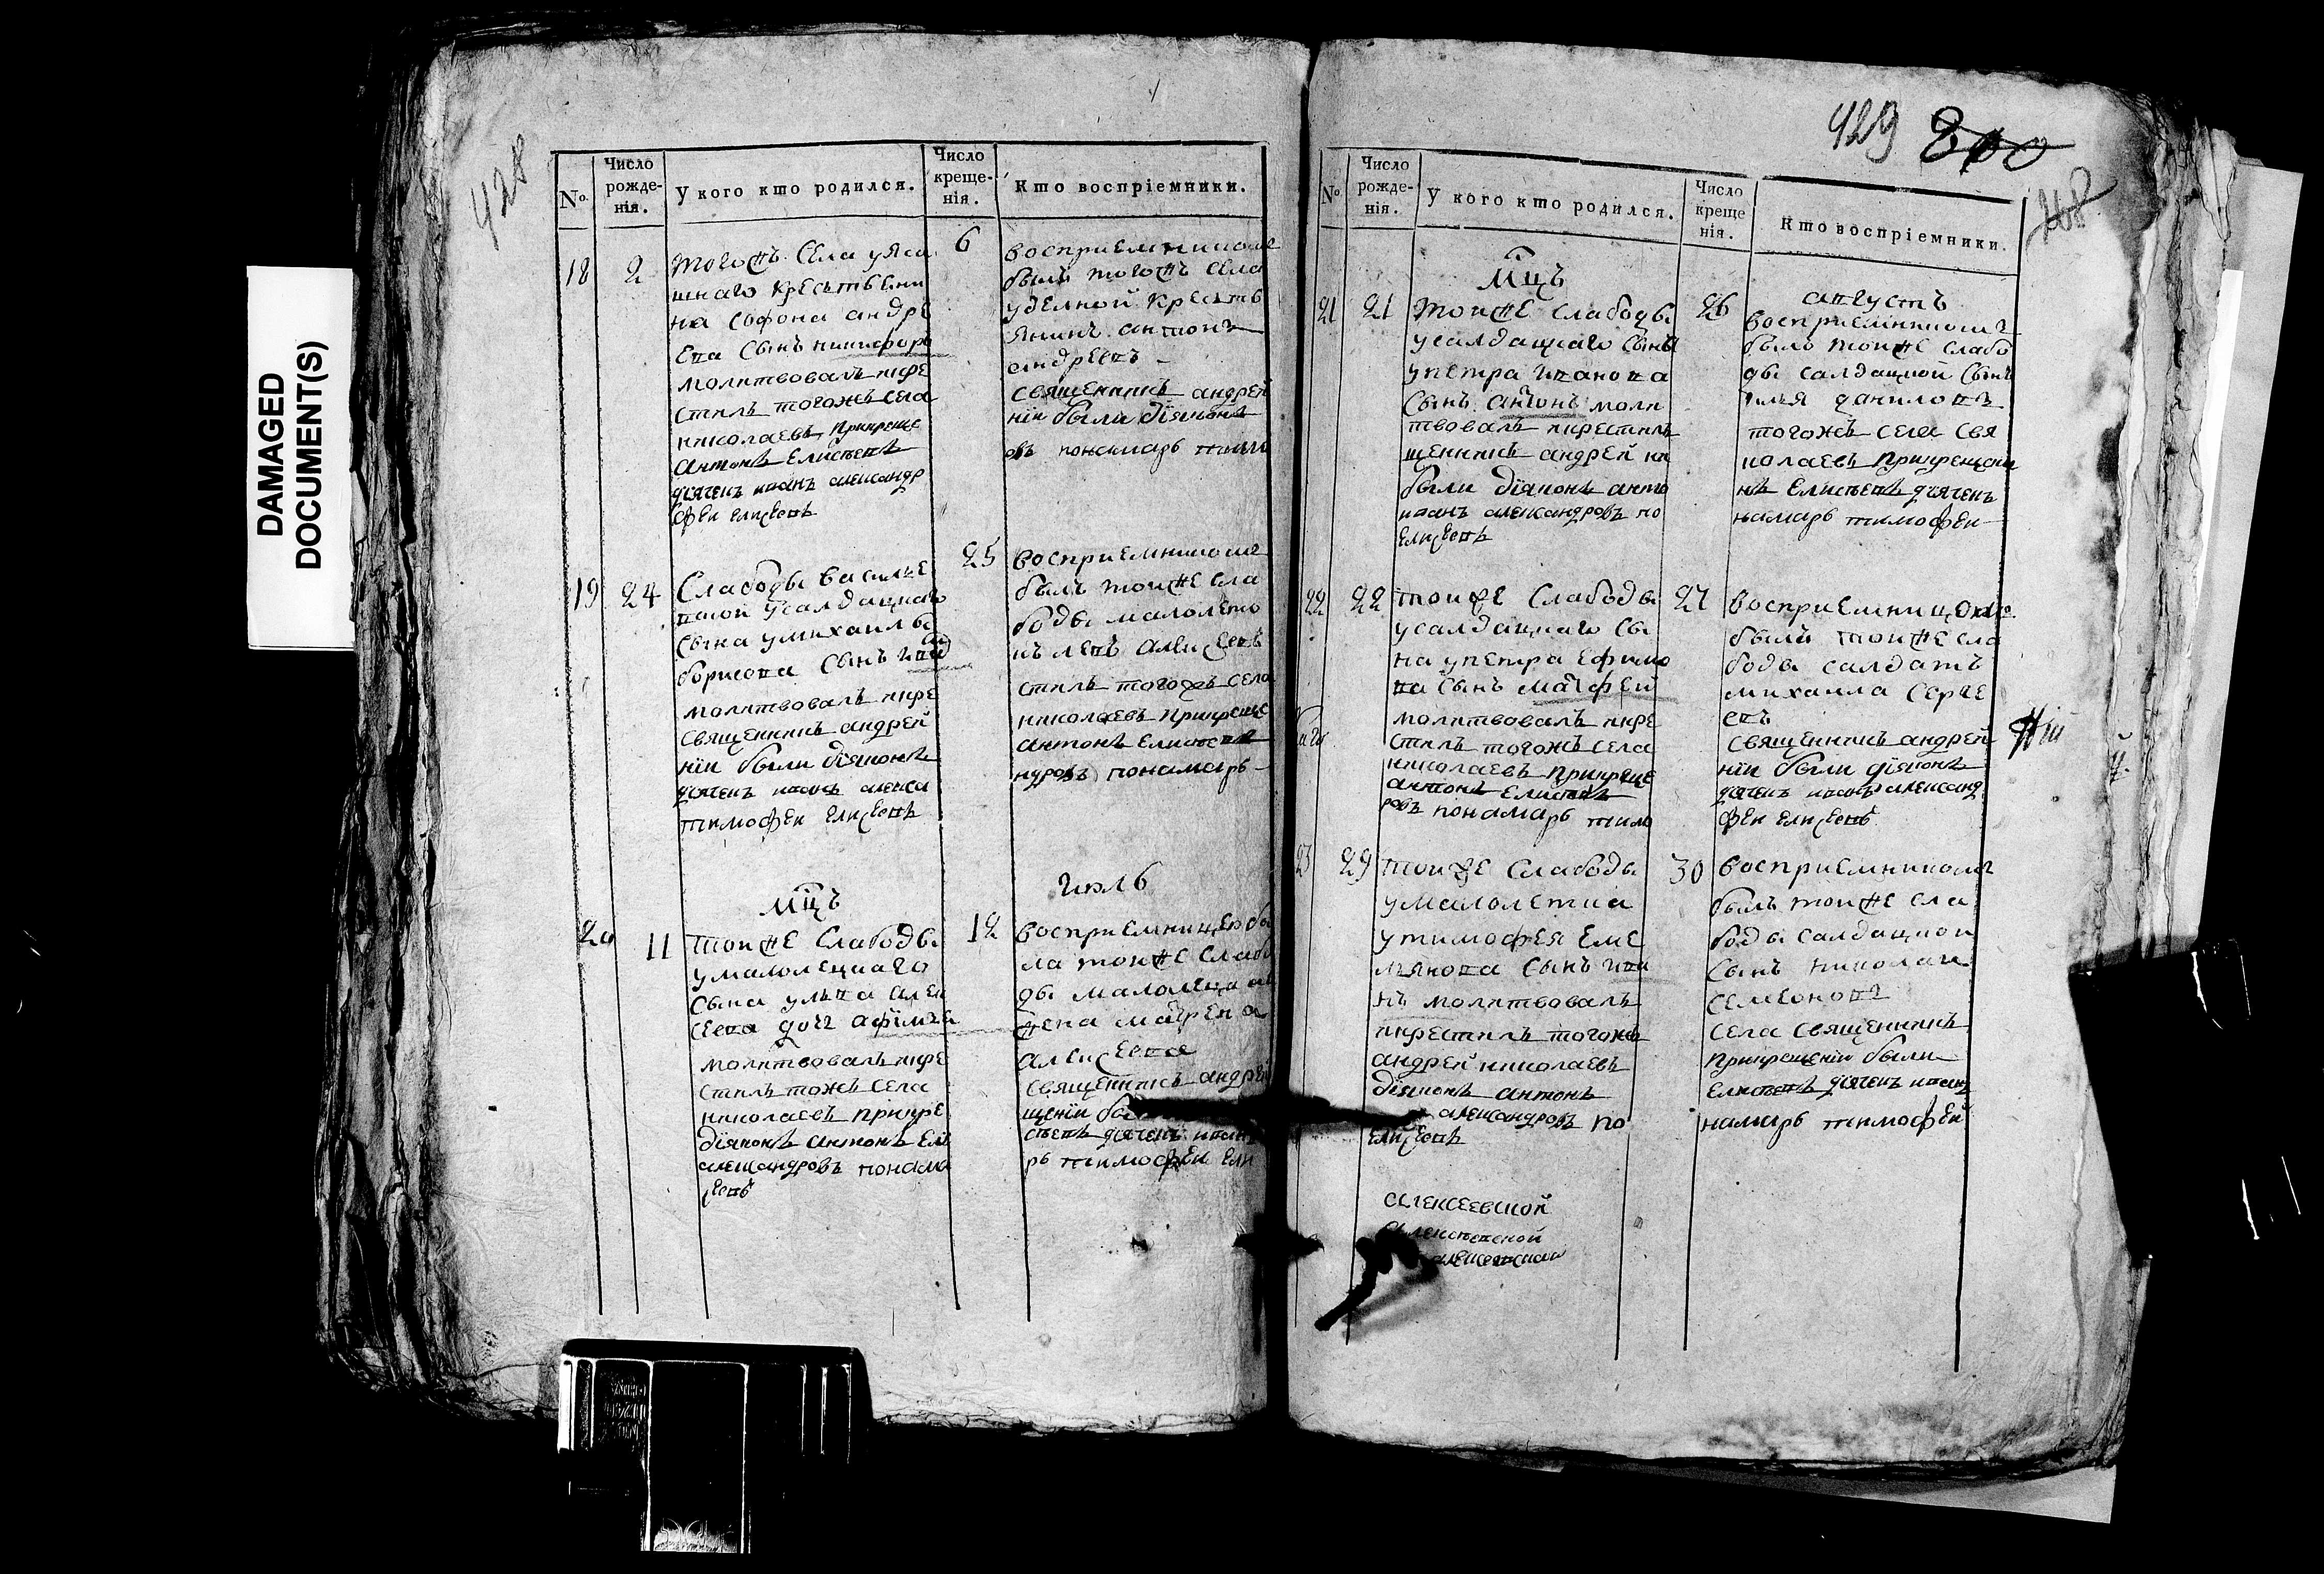 DAMAGED
DOCUMENT(S)
428
№
Число
рожде-
нія.
У кого кто родился.
Число
креще-
нія.
Кто воспріемники.
18
2
тогожъ села уяса
шнаго крестьяни
на софона андре
ева сынъ никифоръ
молитвовалъ икре
стилъ тогожъ села
николаевъ прикреще
антонъ елисѣевъ
дьячекъ иванъ александр
феи елисеевъ
6
восприемникомъ
былъ тогожъ села
уделной крестья
янинъ антонъ
андреевъ
священникъ андрей
ніи были діяконъ
овъ понамарь тимо
19
24
Слабоды василье
вской усалдацкаго
сына умихаилы
борисова сынъ иван
молитвовалъ икре
священникъ андрей
ніи были діяконъ
дьячекъ иванъ алекса
тимофеи елисеевъ
25
восприемникомъ
былъ тоиже сла
боды малолето
къ левъ алексеевъ
стилъ тогожъ села
николаевъ прикреще
антонъ елисѣевъ
ндровъ понамарь
мцъ
июль
20
11
тоиже слабоды
умалолецкаго
сына ульва алек
сеева дочь афимья
молитвовалъ икре
стилъ тожъ села
николаевъ прикре
діяконъ антонъ ели
александровъ понама
сеевъ
12
восприемницею бы
ла тоиже слабо
ды малолецкая
жена матрена
алексеева
священникъ андрей
щеніи бы
сѣевъ дьячекъ иванъ
рь тимофеи ели
429
№
Число
рожде-
нія.
У кого кто родился.
Число
креще
нія.
Кто воспріемники.
мцъ
августъ
21
21
тоиже слабоды
усалдацкаго сына
упетра иванова
сынъ антонъ моли
твовалъ икрестилъ
щенникъ андрей ни
были діяконъ анто
иванъ александровъ по
елисеевъ
26
восприемникомъ
было тоиже слабо
ды салдацкой сынъ
илья даниловъ
тогожъ села свя
колаевъ прикрещени
нъ елисѣевъ дьячекъ
намарь тимофеи
22
22
тоиже слабоды
усалдацкаго сы
на упетра ефимо
ва сынъ матфей
молитвовалъ икре
стилъ тогожъ села
николаевъ прикреще
антонъ елисѣевъ
ровъ понамарь тимо
27
восприемницею
были тоиже сла
боды салдатъ
михаила сергее
въ
священникъ андрей
ніи были діяконъ
дьячекъ иванъ александ
феи елисеевъ
23
29
тоиже слабоды
умалолетка
утимофея еме
льянова сынъ ива
нъ молитвовалъ
икрестилъ тогожъ
андрей николаевъ
діяконъ антонъ
александровъ по
елисеевъ
30
восприемникомъ
былъ тоиже сла
боды салдацкои
сынъ николаи
семеоновъ
села священникъ
прикрещеніи были
елисѣевъ дьячекъ иванъ
намарь тимофей
алексеевской